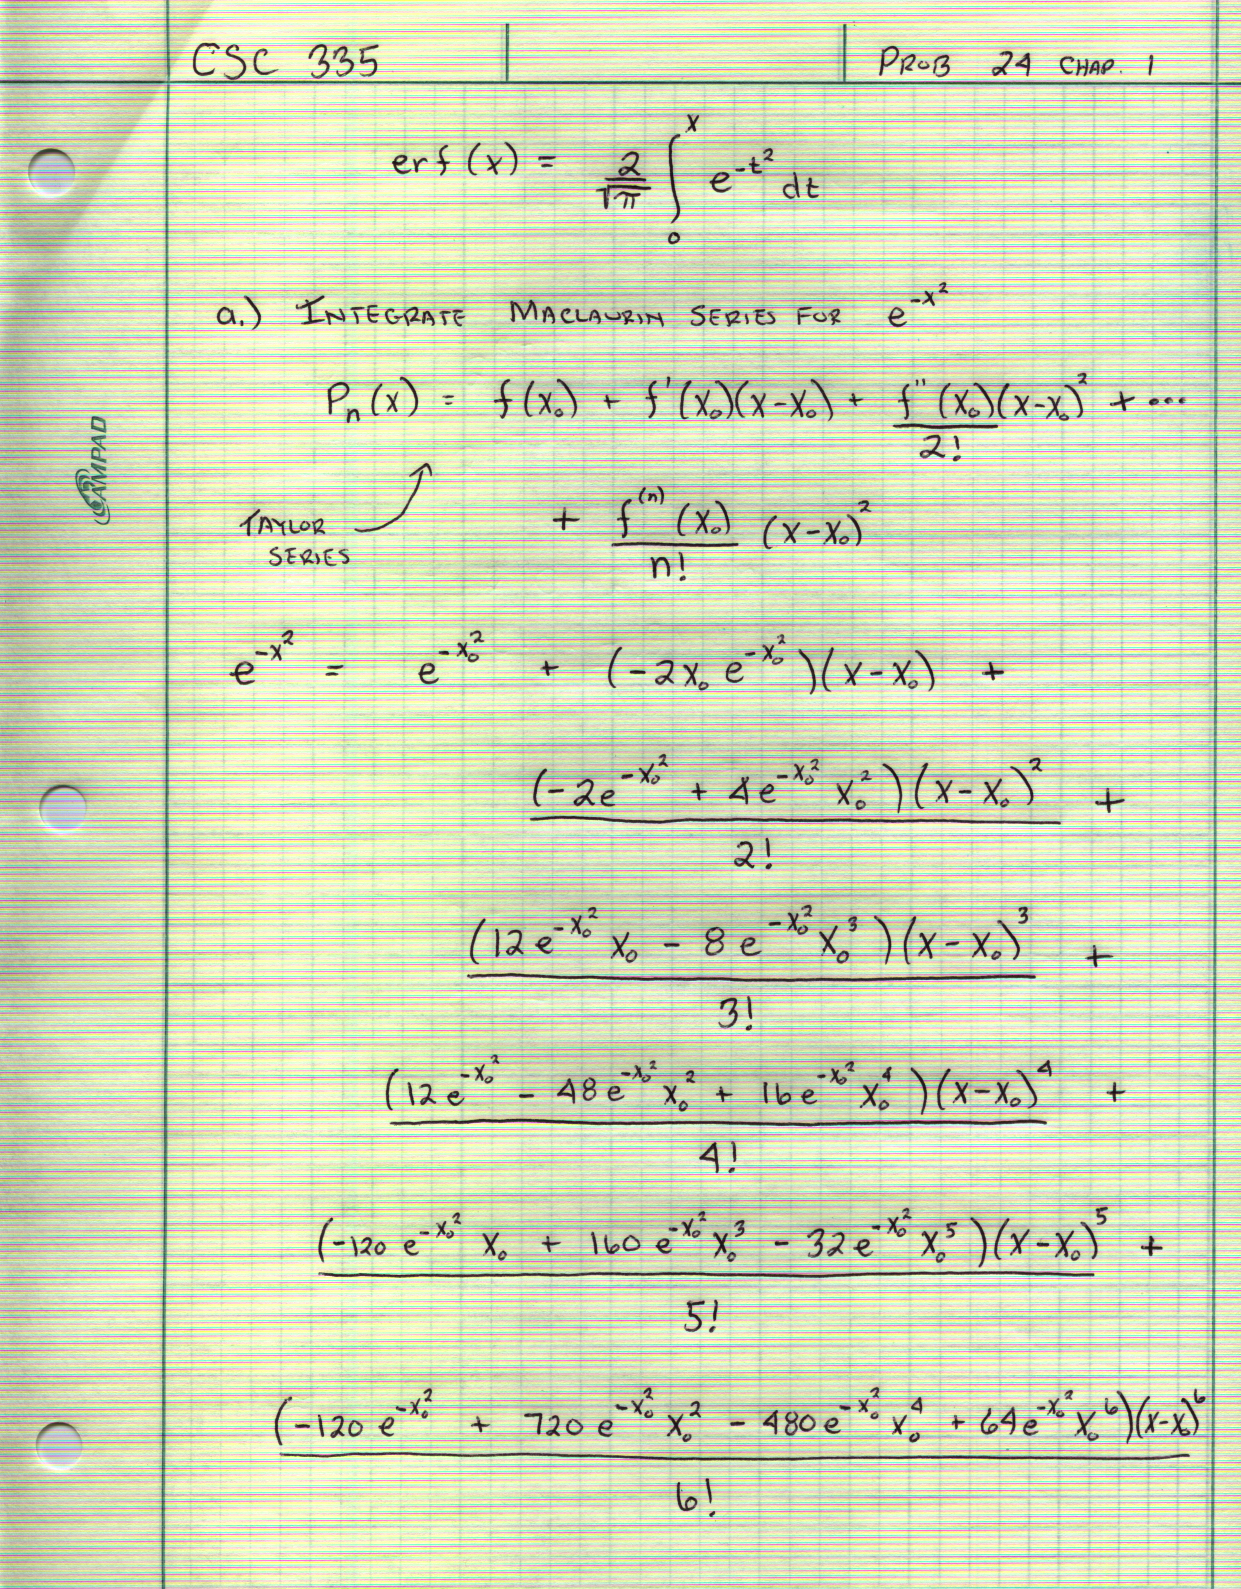 CSC 335 PROB 24 CHAP. 1
erf (x) = 2/√π ∫₀ˣ e^(-t²) dt
a.) INTEGRATE MACLAURIN SERIES FOR e^(-x²)
Pₙ(x) = f(x₀) + f'(x₀)(x-x₀) + f''(x₀)/2! (x-x₀)² + ...
TAYLOR SERIES + f⁽ⁿ⁾(x₀)/n! (x-x₀)²
e^(-x²) = e^(-x₀²) + (-2x₀ e^(-x₀²))(x-x₀) +
(-2e^(-x₀²) + 4e^(-x₀²) x₀²)(x-x₀)² / 2! +
(12e^(-x₀²) x₀ - 8e^(-x₀²) x₀³)(x-x₀)³ / 3! +
(12e^(-x₀²) - 48e^(-x₀²) x₀² + 16e^(-x₀²) x₀⁴)(x-x₀)⁴ / 4! +
(-120e^(-x₀²) x₀ + 160e^(-x₀²) x₀³ - 32e^(-x₀²) x₀⁵)(x-x₀)⁵ / 5! +
(-120e^(-x₀²) + 720e^(-x₀²) x₀² - 480e^(-x₀²) x₀⁴ + 64e^(-x₀²) x₀⁶)(x-x₀)⁶ / 6!
AMPAD